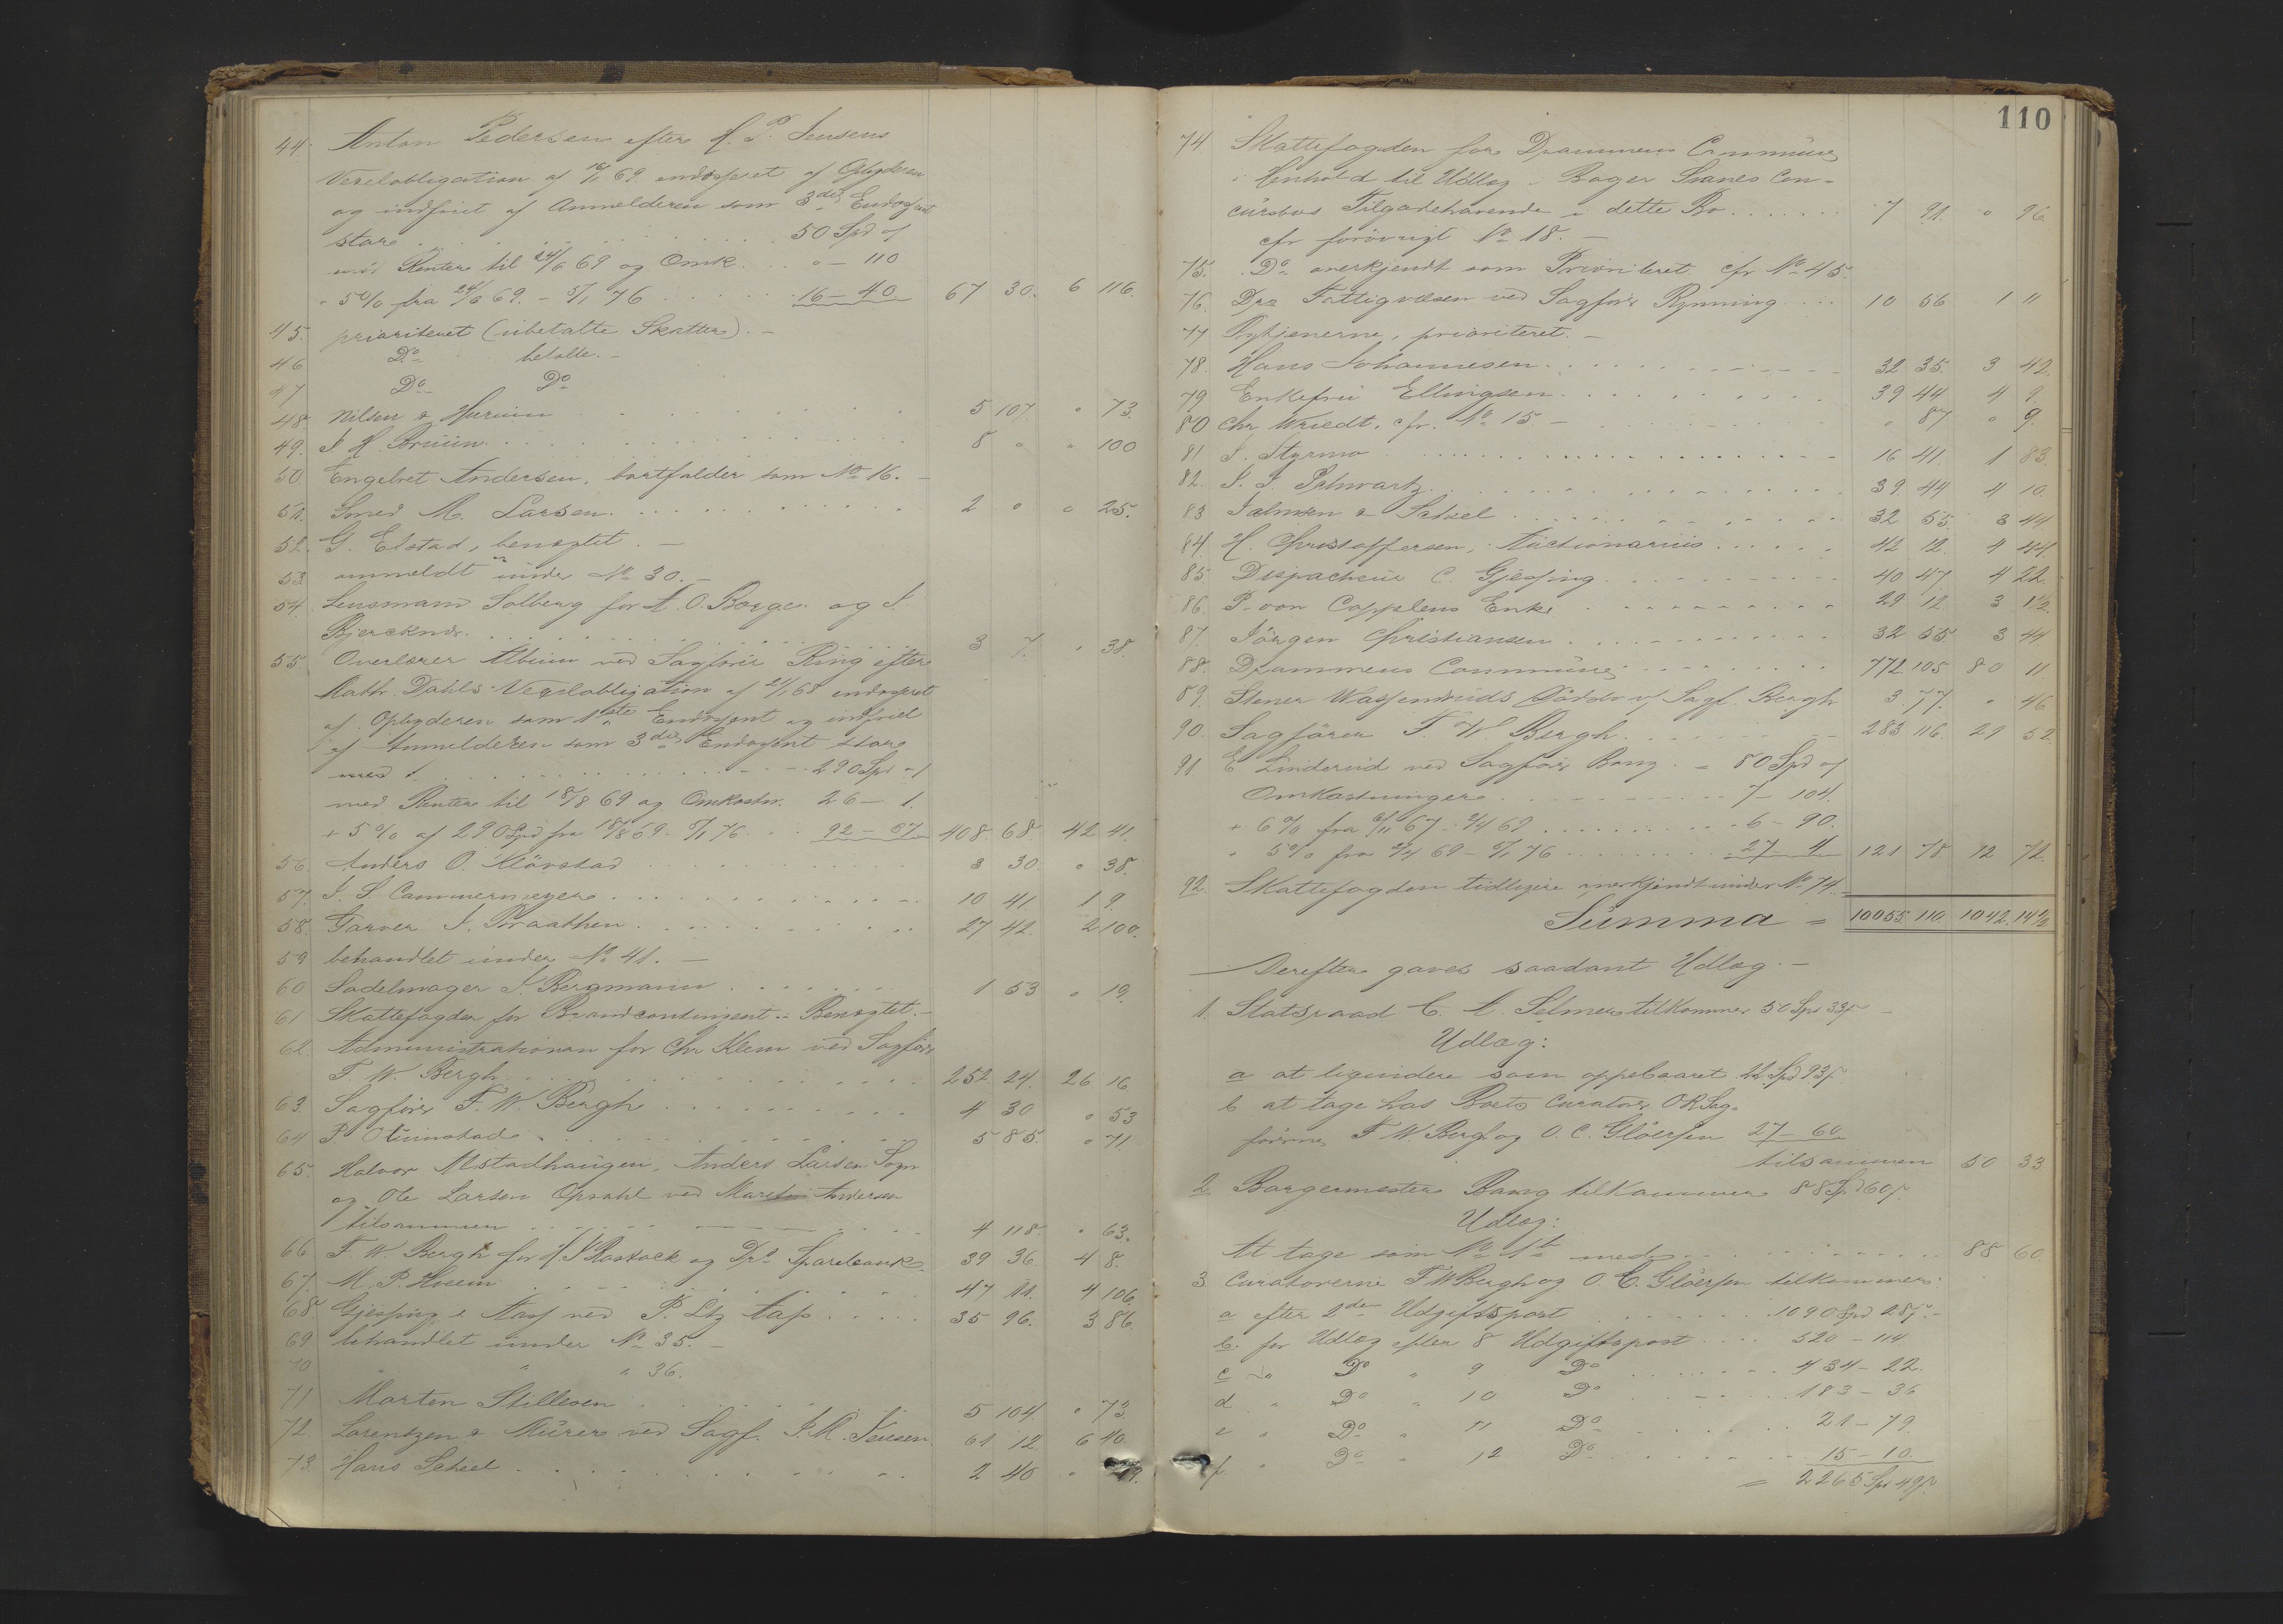 44. Anton Pedersen efter H. P. Jensens
Vexelobligation af 69 endosseret af Opbyderen
og indfriet af Anmelderen som 3die Endossent
stor . . . 50 Spd og
med Renter til 24/6 69 og Omk. . . " – 110
" 5% fra 24/6 69 – 5/1 76 . . . 16 – 40 67 30. 6 116.
45. prioriteret (ubetalte Skatter). –
46 Do betalte. –
47 Do Do
48. Nilsen & . . . 5 107. " 73.
49. I. H. Brüün . . . 8 " " 100
50 Engebret Andersen, bortfalder som No 16. –
51. Smed M. Larsen. . . . 2 " " 25.
52. G. Elstad, benegtet. –
53 anmeldt under No 30. –
54. Lensmand Solberg for A. O. Borge og I.
Bjercknæs. . . . 3 7. " 38.
55. Overlærer Album ved Sagfører Ring efter
Math. Dahls Vexelobligation af 21/1 68 endosseret
af Opbyderen som 1ste Endossent og indfriet
af Anmelderen som 3die Endossent stor
med . . . 290 Spd – "
med Renter til 18/8 69 og Omkostn. 26 – 1.
+ 5% af 290 Spd fra 18/8 69 – 5/1 76 . . 92 – 67 408. 68. 42 41.
56 Anders O. Klövstad . . . 3 30. " 38.
57. I. S. Cammermeyer . . . 10 41 1 9.
58. Garver I. Braathen . . . 27 42. 2 100.
59 behandlet under No 41. –
60 Sadelmager I. Bergmann . . . 1 53 " 19.
61 Skattefogden for Brandcontingent – Benegtet. –
62. Administrationen for Chr Klem ved Sagfører
F. W. Bergh . . . 252 24. 26 16
63. Sagfører F. W. Bergh . . . 4 30 " 53
64 P. . . . 5 85. " 71.
65. Halvor Alstadhaugen, Anders Larsen Sogn
og Ole Larsen Opsahl ved Martin Andersen
tilsammen . . . 4 118. " 63.
66 F. W. Bergh for H. I. Rostock og Drs Sparebank. 39 36. 4 8.
67. M. P. Hveem . . . 47 11. 4 106
68. Gjessing & Aass ved P. Ltz Aass . . . 35 96. 3 86.
69 behandlet under No 35. –
70 " " " 36.
71 Morten Stillesen . . . 5 104. " 73.
72. Lorentzen & Mürer ved Sagf. I. M. Jensen 61 12. 6 40.
73. Hans Scheel . . . 2 40 " 19.
110
74. Skattefogden for Drammens Commüne
i Henhold til Udlæg i Bager Svanes Con-
cursbos Tilgodehavende i dette Bo . . . 7 91. " 96
cfr forövrigt No 18. –
75. Do anerkjendt som Prioriteret cfr No 45.
76. Drs Fattigvæsen ved Sagförer Rynning . . . 10 56 1 11
77 Tyttjenerne, prioriteret. –
78. Hans Johannesen . . . 32 35. 3 42.
79 Enkefru Ellingsen . . . 39 44 4 9.
80 Chr Wriedt, cfr. No 15 – . . . " 87 " 9.
81 I. Styrmo . . . 16 41. 1 83.
82. S. I. Schwartz . . . 39. 44 4 10.
83 Jalmsen & Scheel . . . 32 55. 3 44
84. H. Christoffersen, Auctionarius . . . 42 12. 4 44.
85 Dispacheur C. Gjessing . . . 40 47 4 22.
86. P. von Cappelens Enke . . . 29 12 3 1½.
87. Jörgen Christiansen . . . 32 55 3 44
88. Drammens Commüne . . . 772. 105 80 11
89. Stener Wassendruds v/ Sagf. Bergh 3. 77. " 46
90. Sagförer F. W. Bergh . . . 283 116. 29 52.
91 E Linderud ved Sagförer Bang. – 80 Spd og
Omkostninger . . . 7 – 104.
+ 6% fra 67 – 2/4 69 . . . 6 – 90.
" 5% fra 2/4 69 – 5/1 76 . . . 27 – 4 121 78. 12 72.
92. Skattefogden tidligere anerkjendt under No 74.
Summa = 10055. 110. 1042. 14½
Derefter gaves saadant Udlæg. –
1. Statsraad C. A. Selmer tilkommer 50 Spd 33 ſ –
Udlæg:
a at liqvidere som oppebaaret 22 Spd 93 ſ
b at tage hos Boets Curatorer O R Sag-
förerne F W Bergh og O. C. Glöersen 27 – 60
tilsammen 50 33.
2 Borgermester Bang tilkommer 88 Spd 60 ſ.
Udlæg:
At tage som No 1 b med . . . 88 60
3. Curatorerne F W Bergh og O. C. Glöersen tilkommer:
a efter 2den Udgiftspost . . . 1090 Spd 28 ſ. –
b. for Udlæg efter 8 Udgiftspost . . . 520 – 114
c " Do " 9 Do . . . 434 – 22.
d " Do " 10 Do . . . 183 – 36
e " Do " 11 Do . . . 21 – 79.
f " Do " 12 Do . . . 15 – 10.
= 2265 Spd 49 ſ.